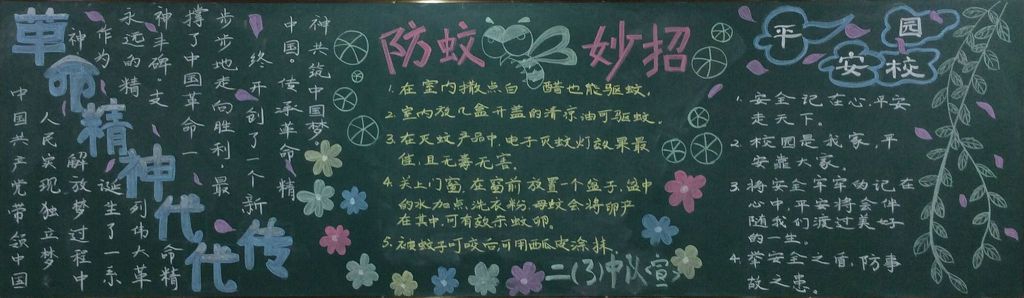 革命精神代代传
中国共产党带领中国
人民实现独立梦
解放梦过程中
诞生了一系
列伟大革
命精
神
作为
永远的精
神丰碑支
撑了中国革命一
步步地走向胜利,最
终开创了一个新
中国。传承革命精
神共筑中国梦。
防蚊妙招
1.在室内撒点白醋也能驱蚊.
2.室内放几盒开盖的清凉油可驱蚊.
3.在灭蚊产品中,电子灭蚊灯效果最
值,且无毒无害.
4.关上门窗,在窗前放置一个盆子,盆中
的水加点洗衣粉,母蚊会将卵产
在其中,可有效杀蚊卵.
5.被蚊子叮咬后可用西瓜皮涂抹.
二(3)中队宣
平安校园
1.安全记在心,平安
走天下。
2.校园是我家,平
安靠大家。
3.将安全牢牢的记在
心中,平安将会伴
随我们渡过美好
的一生。
4.举安全之盾,防事
故之患。